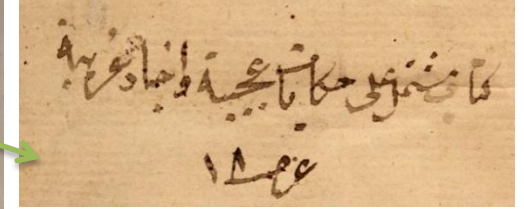 كتاب مشتمل على حكايات عجيبة واخبار غريبة